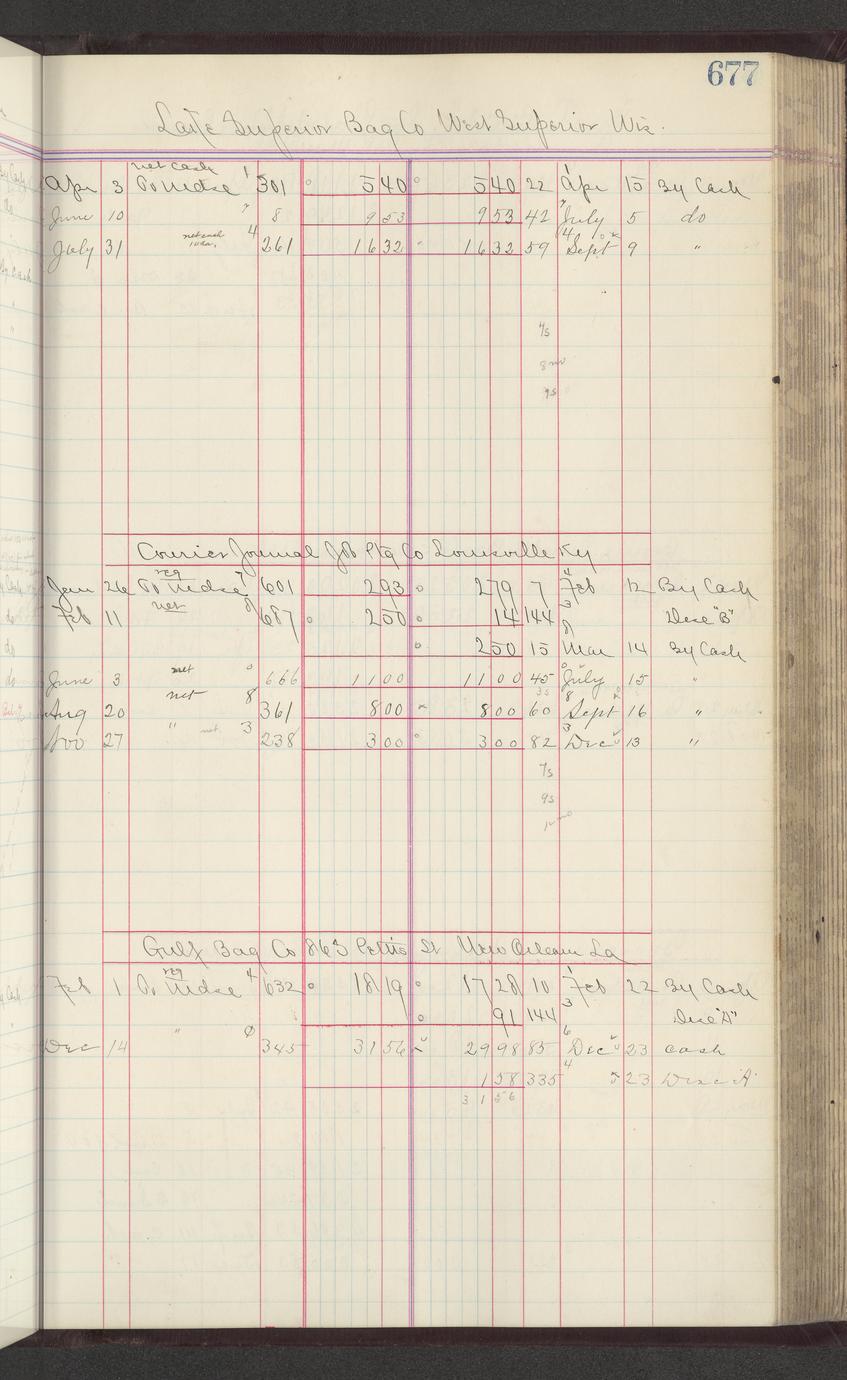 677
Lake Superior Bag Co West Superior Wis.
net cash
Apr 3 To Mdse 1 301 540 540 22 1 Apr 15 By Cash
June 10 7 8 953 953 42 7 July 5 do
July 31 net cash 10 da. 4 261 1632 1632 59 4 Sept 9 "
4/s
9s
Courier Journal Job Ptg Co Louisville Ky
reg
Jan 26 To Mdse 7 601 293 279 7 4 Feb 12 By Cash
Feb 11 net 8 687 250 14 144 3 Disc "B"
250 15 8 Mar 14 By Cash
June 3 net 0 666 1100 1100 45 0 July 15 "
Aug 20 net 8 361 800 800 60 8 Sept 16 "
Nov 27 " net 3 238 300 300 82 3 Dec 13 "
7s
9s
Gulf Bag Co 863 Pettis St New Orleans La
reg
Feb 1 To Mdse 4 632 1819 1728 10 1 Feb 22 By Cash
91 144 3 Disc "A"
Dec 14 " 0 345 3156 2998 85 6 Dec 23 Cash
158 335 4 23 Disc "A"
3156